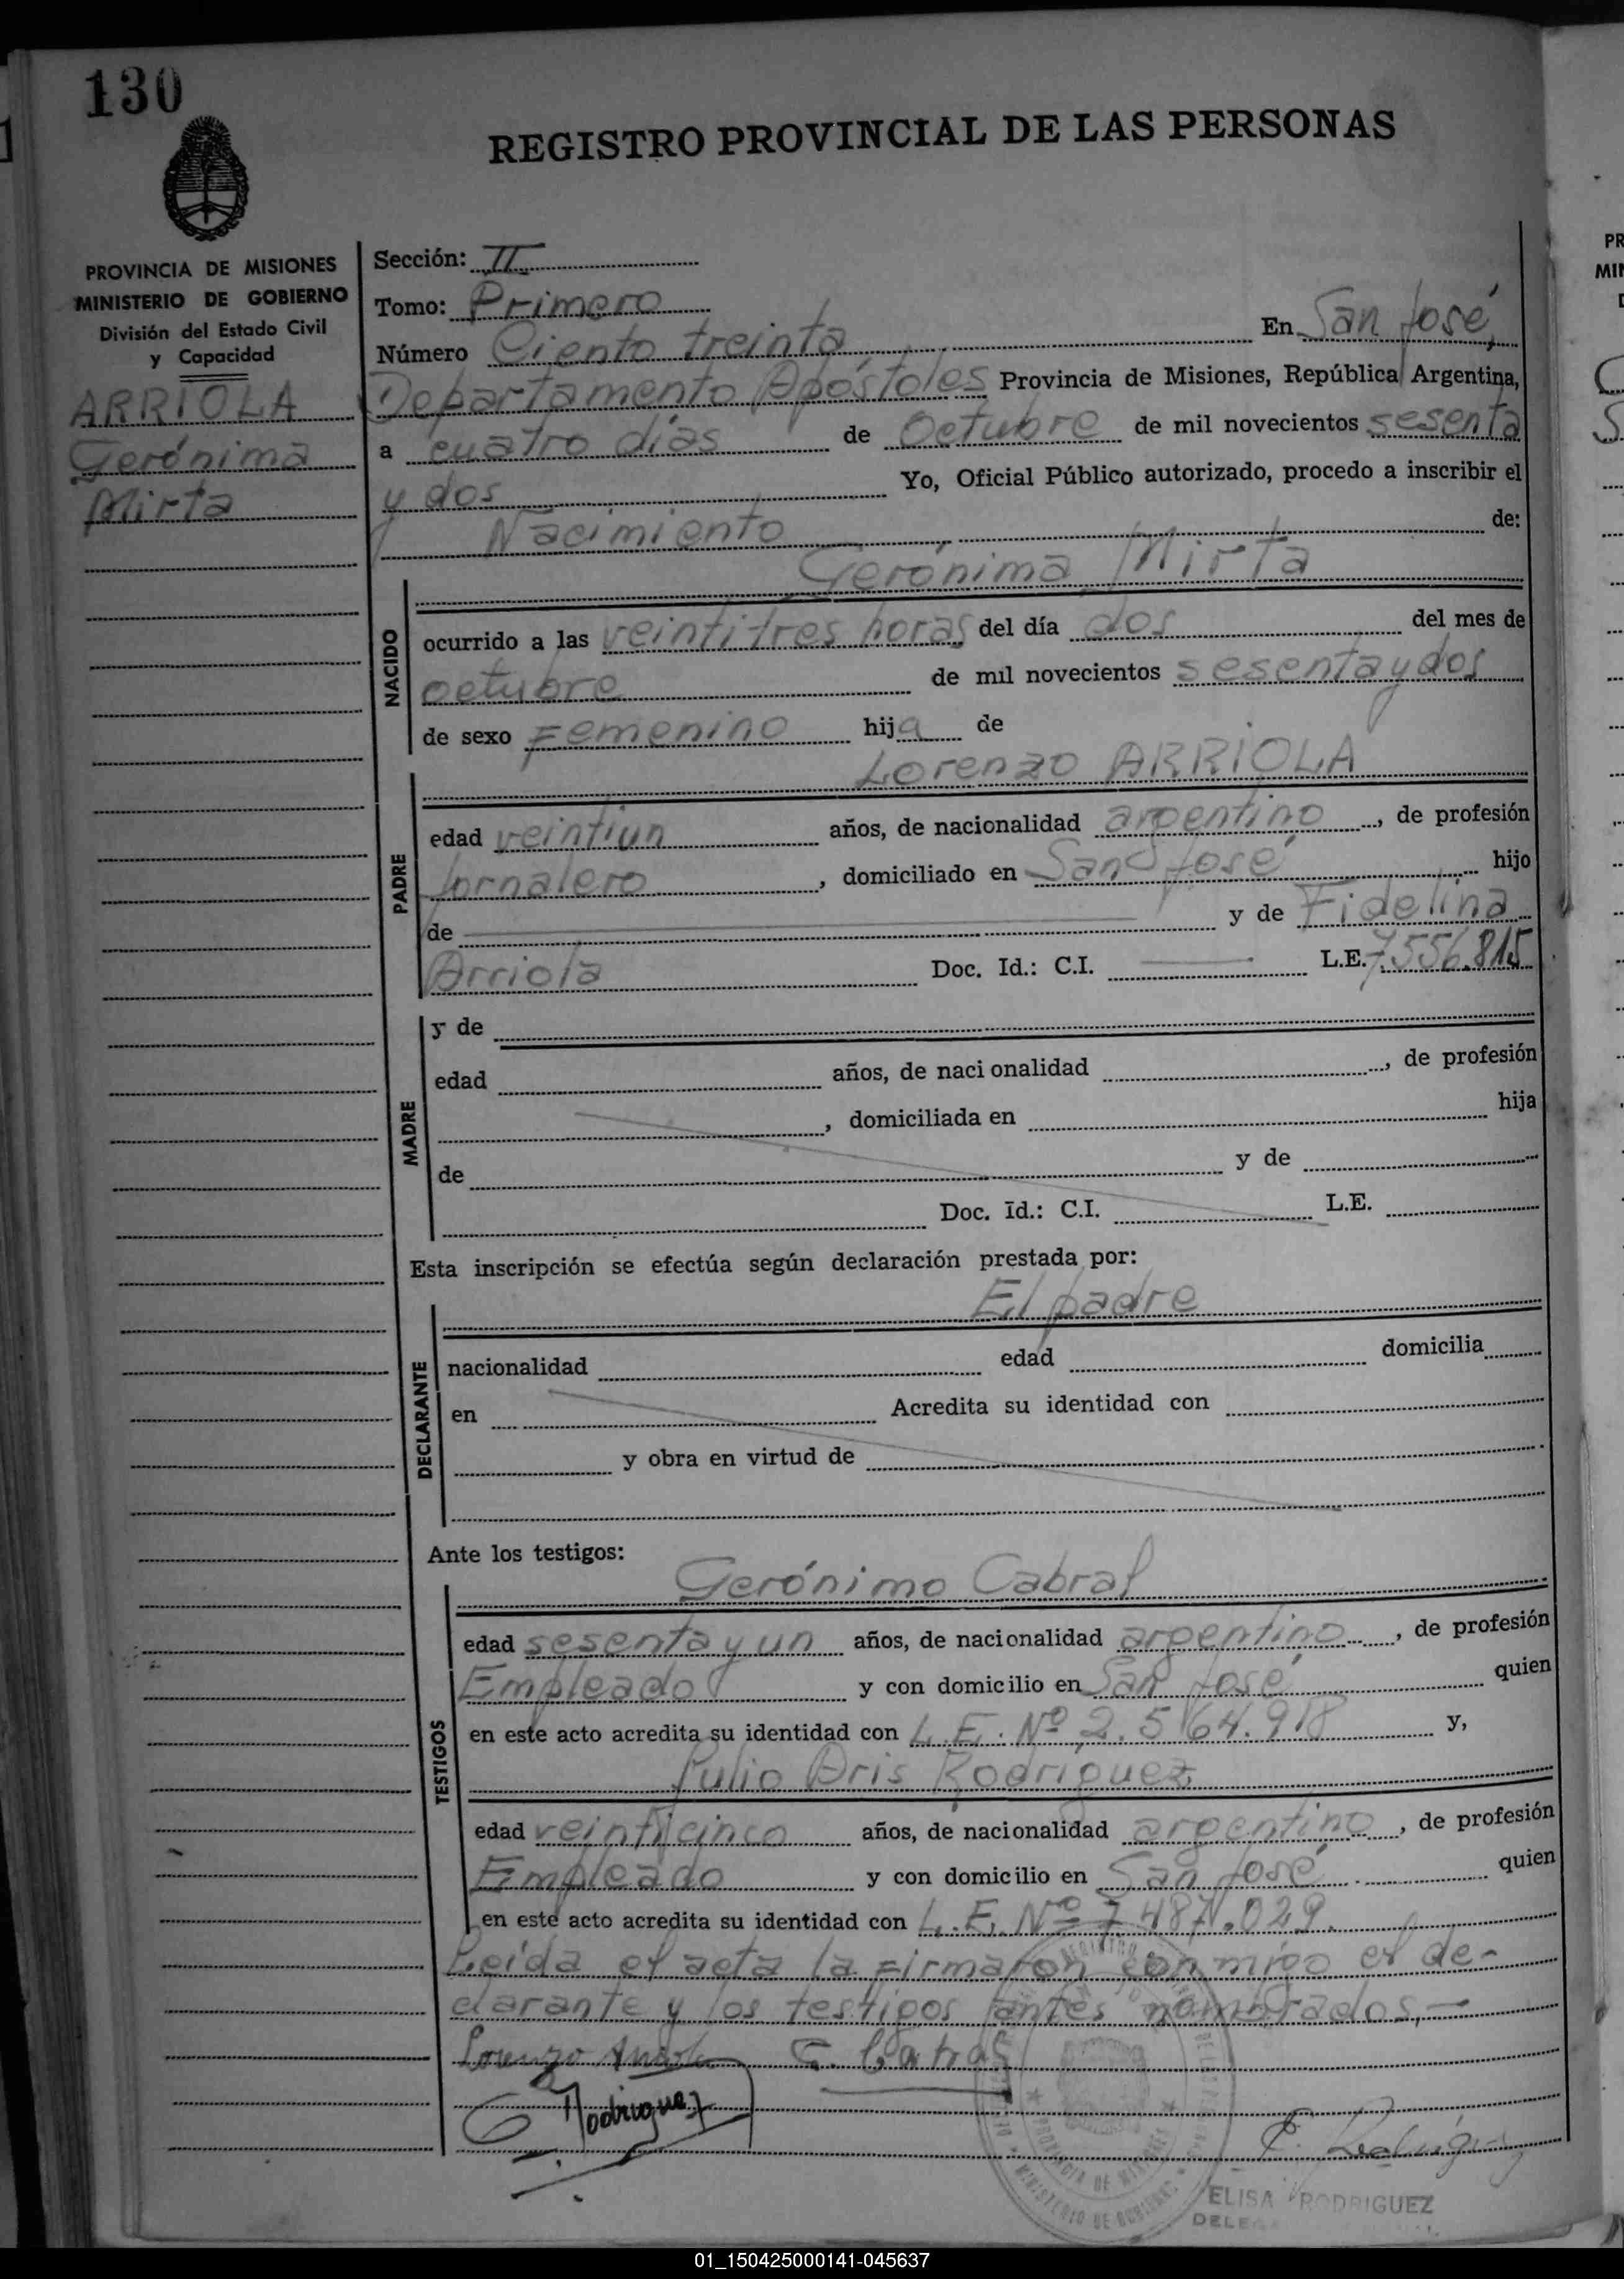 130
REGISTRO PROVINCIAL DE LAS PERSONAS
PROVINCIA DE MISIONES
MINISTERIO DE GOBIERNO
División del Estado Civil
y Capacidad
ARRIOLA
Gerónima
Mirta
Sección: II
Tomo: Primero
Número Ciento treinta En San José,
Departamento Apóstoles Provincia de Misiones, República Argentina,
a cuatro días de Octubre de mil novecientos sesenta
y dos Yo, Oficial Público autorizado, procedo a inscribir el
Nacimiento de:
Gerónima Mirta
NACIDO
ocurrido a las veintitres horas del día dos del mes de
octubre de mil novecientos sesenta y dos
de sexo Femenino hija de
Lorenzo ARRIOLA
PADRE
edad veintiun años, de nacionalidad argentino, de profesión
Jornalero, domiciliado en San José hijo
de y de Fidelina
Arriola Doc. Id.: C.I. L.E. 7.556.815
MADRE
y de
edad años, de naci onalidad , de profesión
, domiciliada en hija
de y de
Doc. Id.: C.I. L.E.
Esta inscripción se efectúa según declaración prestada por:
El padre
DECLARANTE
nacionalidad edad domicilia
en Acredita su identidad con
y obra en virtud de
Ante los testigos:
Gerónimo Cabral
TESTIGOS
edad sesenta y un años, de nacionalidad argentino, de profesión
Empleado y con domicilio en San José quien
en este acto acredita su identidad con L.E. Nº 2.564.918 y,
Julio Aris Rodriguez
edad veinticinco años, de nacionalidad argentino, de profesión
Empleado y con domicilio en San José quien
en este acto acredita su identidad con L.E. Nº 7.487.029.
Leída el acta la firmaron conmigo el de-
clarante y los testigos antes nombrados,—
Lorenzo Arriola G. Cabral
Rodriguez
E. Rodriguez
PROVINCIA DE MISIONES
MINISTERIO DE GOBIERNO
ELISA RODRIGUEZ
01_150425000141-045637